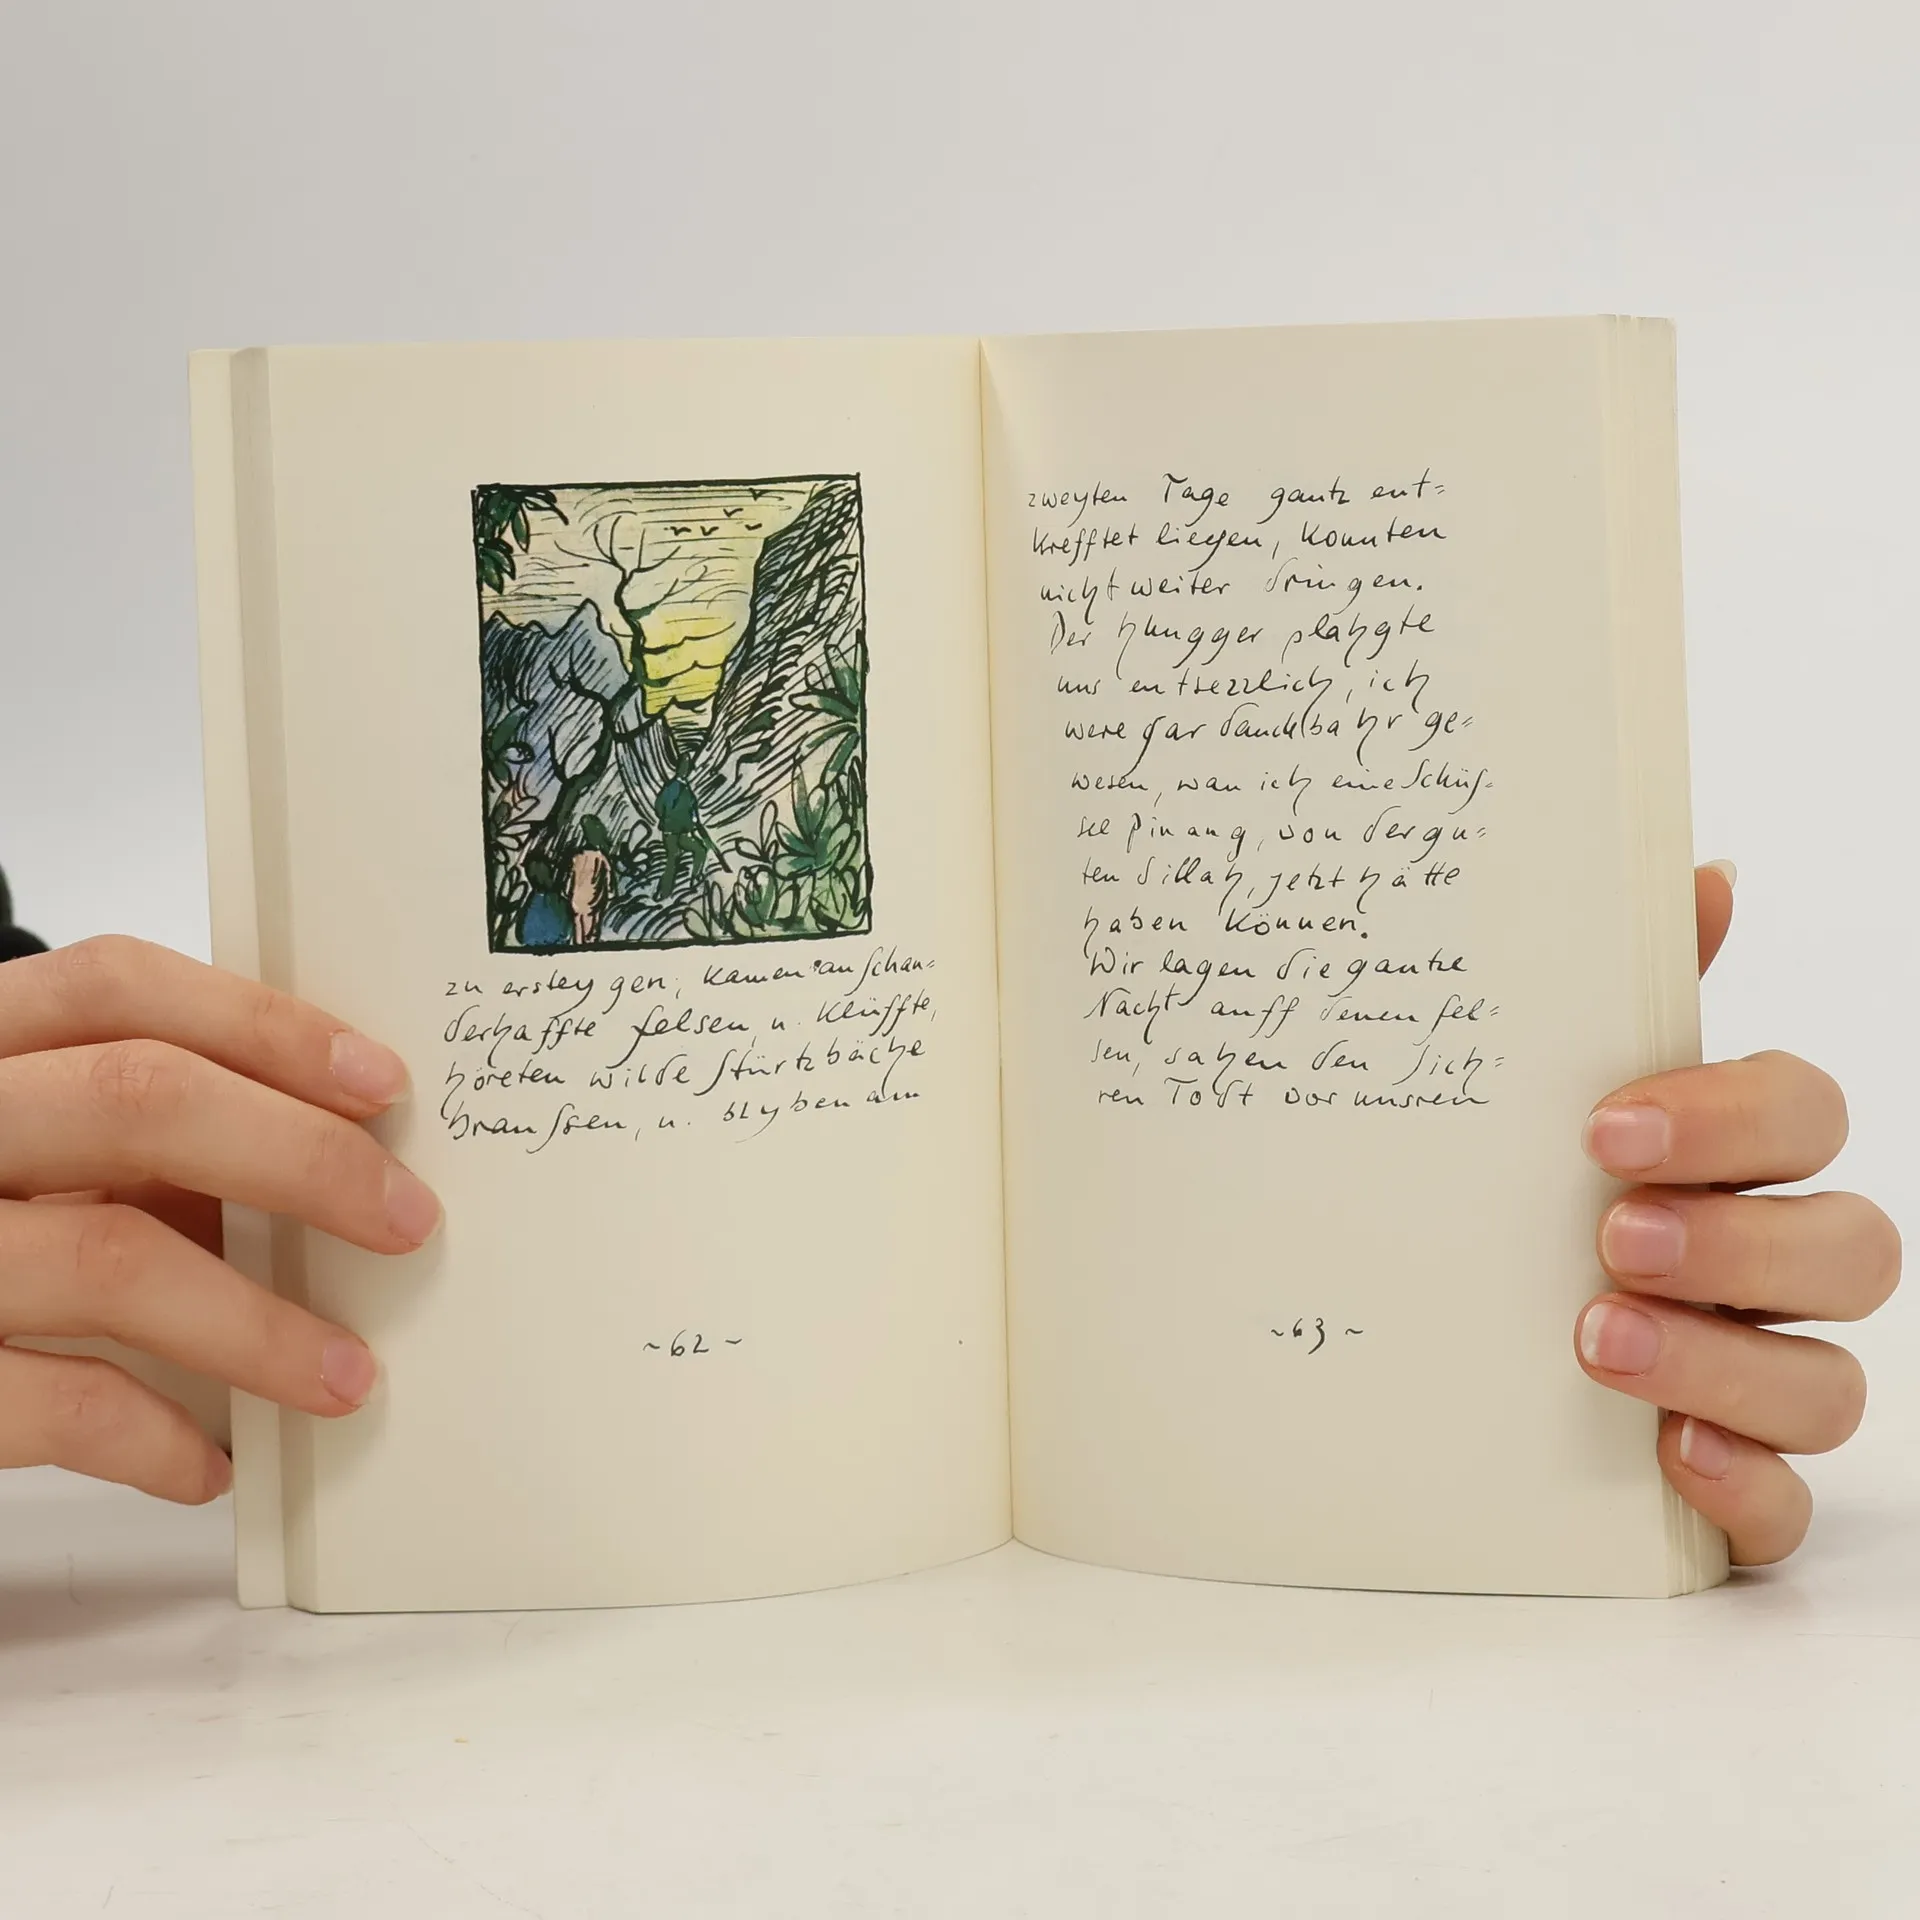 zu ersteygen, kamen an schau=
derhaffte felsen, u. Klüffte,
höreten wilde Stürtzbäche
braussen, u. blyben am
~62~
zweyten Tage gantz ent=
krefftet liegen, konnten
nicht weiter dringen.
Der Hungger plahgte
uns entsezzlich, ich
were gar danckbahr ge=
wesen, wan ich eine Schüs=
sel Pinang, von der gu=
ten Sillah, jetzt hätte
haben können.
Wir lagen die gantze
Nacht auff denen fel=
sen, sahen den sich=
ren Todt vor unsren
~63~